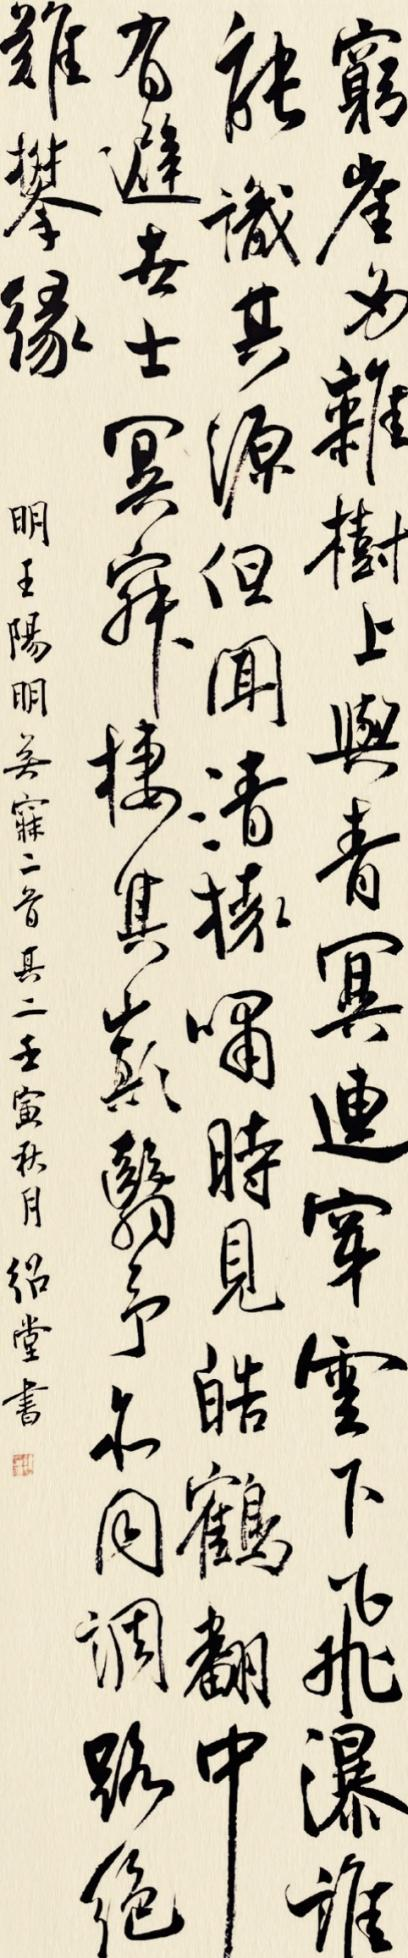 窮崖多雜樹上與青冥連穿雲下飛瀑誰
能識其源但聞清猿嘯時見皓鶴翻中
有避世士冥寂棲其巔繄予亦同調路絕
難攀緣
明王陽明無寐二首其二壬寅秋月 紹堂書